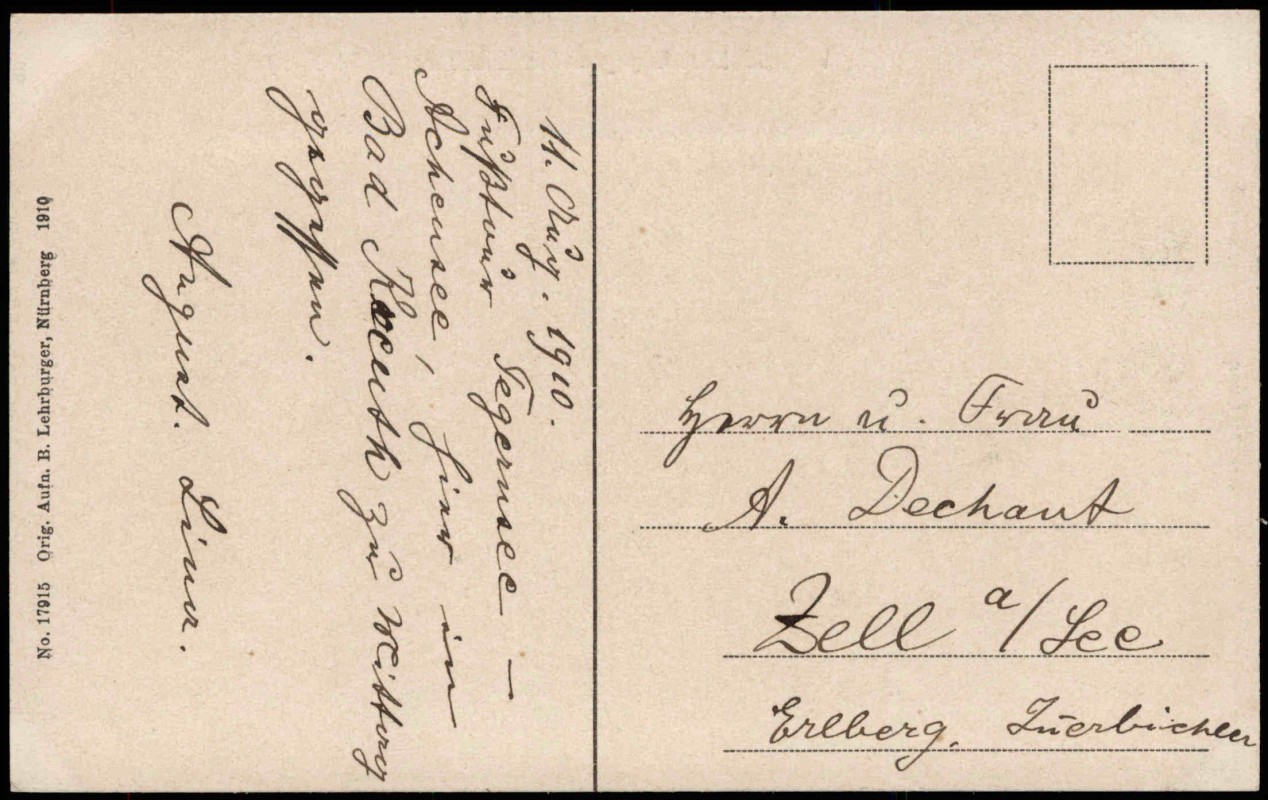 11. Aug. 1910.
Fußtour Tegernsee —
Achensee, hier in
Bad Kreuth zu Mittag
gegessen.
August. Linn.
Herrn u. Frau
A. Dechant
Zell a/See
Erlberg,
No. 17915 Orig. Aufn. B. Lehrburger, Nürnberg 1910